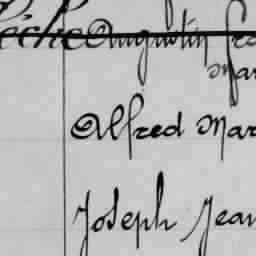 Augustin
Mar
Alfred Mar
Joseph Jean